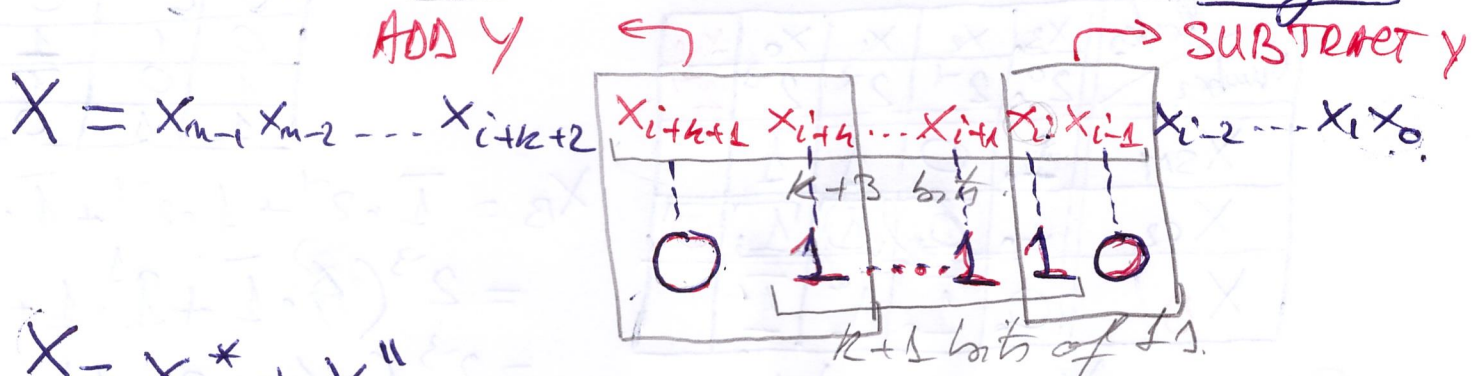 ADD Y SUBTRACT Y
X = x_{n-1} x_{n-2} ---- x_{i+k+2} x_{i+k+1} x_{i+k} ... x_{i+1} x_i x_{i-1} x_{i-2} ---- x_1 x_0
k+3 bits
0 1 ..... 1 1 0
k+1 bits of 1s.
X = X* + X"